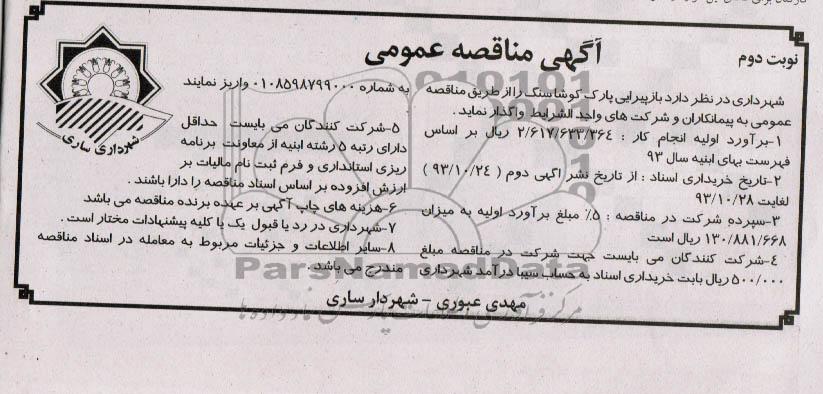 نوبت دوم
آگهی مناقصه عمومی
شهرداری ساری
شهرداری در نظر دارد بازپیرایی پارک کوشاسنگ را از طریق مناقصه
عمومی به پیمانکاران و شرکت های واجد الشرایط واگذار نماید .
۱-برآورد اولیه انجام کار : ۲/۶۱۷/۶۳۳/۳۶۴ ریال بر اساس
فهرست بهای ابنیه سال ۹۳
۲-تاریخ خریداری اسناد : از تاریخ نشر اگهی دوم ( ۹۳/۱۰/۲۴ )
لغایت ۹۳/۱۰/۲۸
۳-سپرده شرکت در مناقصه : ۵٪ مبلغ برآورد اولیه به میزان
۱۳۰/۸۸۱/۶۶۸ ریال است
۴-شرکت کنندگان می بایست جهت شرکت در مناقصه مبلغ
۵۰۰/۰۰۰ ریال بابت خریداری اسناد به حساب سیبا درآمد شهرداری
به شماره ۰۱۰۸۵۹۸۷۹۹۰۰۰ واریز نمایند
.
۵-شرکت کنندگان می بایست حداقل
دارای رتبه ۵ رشته ابنیه از معاونت برنامه
ریزی استانداری و فرم ثبت نام مالیات بر
ارزش افزوده بر اساس اسناد مناقصه را دارا باشند .
۶-هزینه های چاپ آگهی بر عهده برنده مناقصه می باشد
۷-شهرداری در رد یا قبول یک یا کلیه پیشنهادات مختار است .
۸-سایر اطلاعات و جزئیات مربوط به معامله در اسناد مناقصه
مندرج می باشد .
مهدی عبوری - شهردار ساری
ParsNamadData